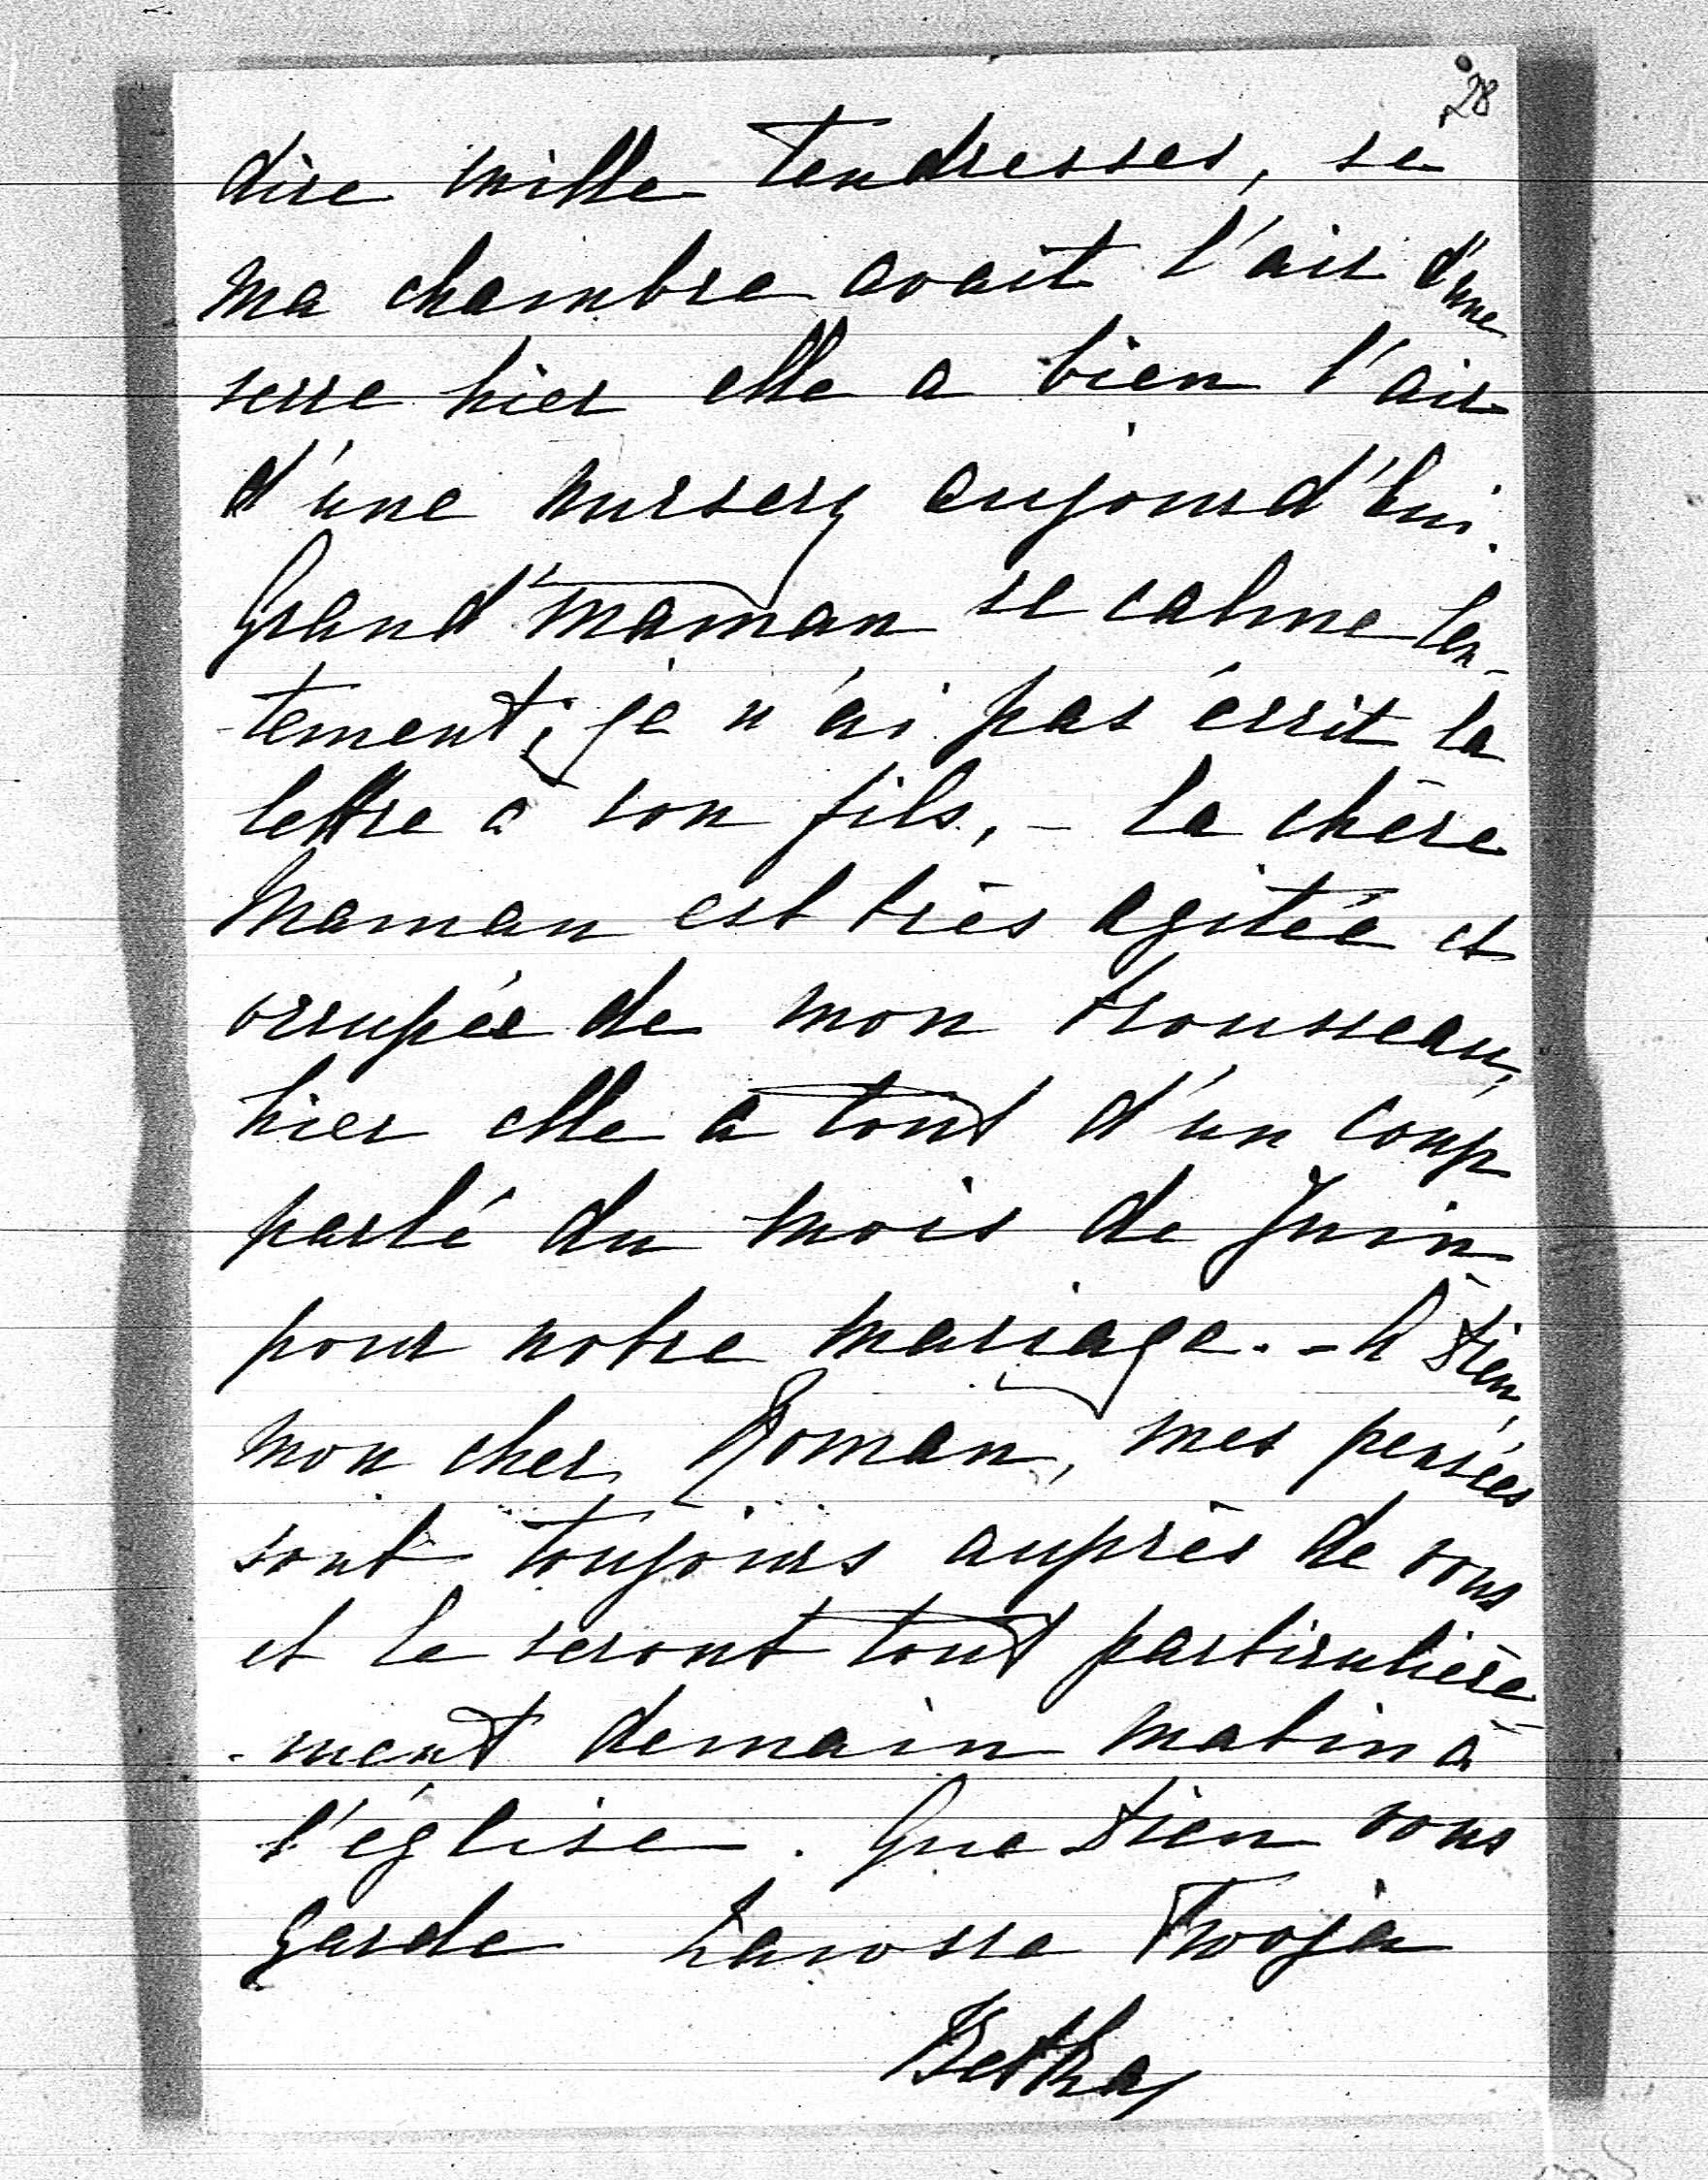 28
dire mille tendresses, si
ma chambre avait l'air d'une
serre hier elle a bien l'air
d'une nursery aujourd'hui.
Grand'maman se calme len-
-tement; je n'ai pas écrit la
lettre à son fils, - la chère
Maman est très agitée et
occupée de mon trousseau,
hier elle a tout d'un coup
parlé du mois de Juin
pour notre mariage. - A Dieu,
mon cher Roman, mes pensées
sont toujours auprès de vous
et le seront tout particulière-
-ment demain matin à
l'église. Que Dieu vous
garde